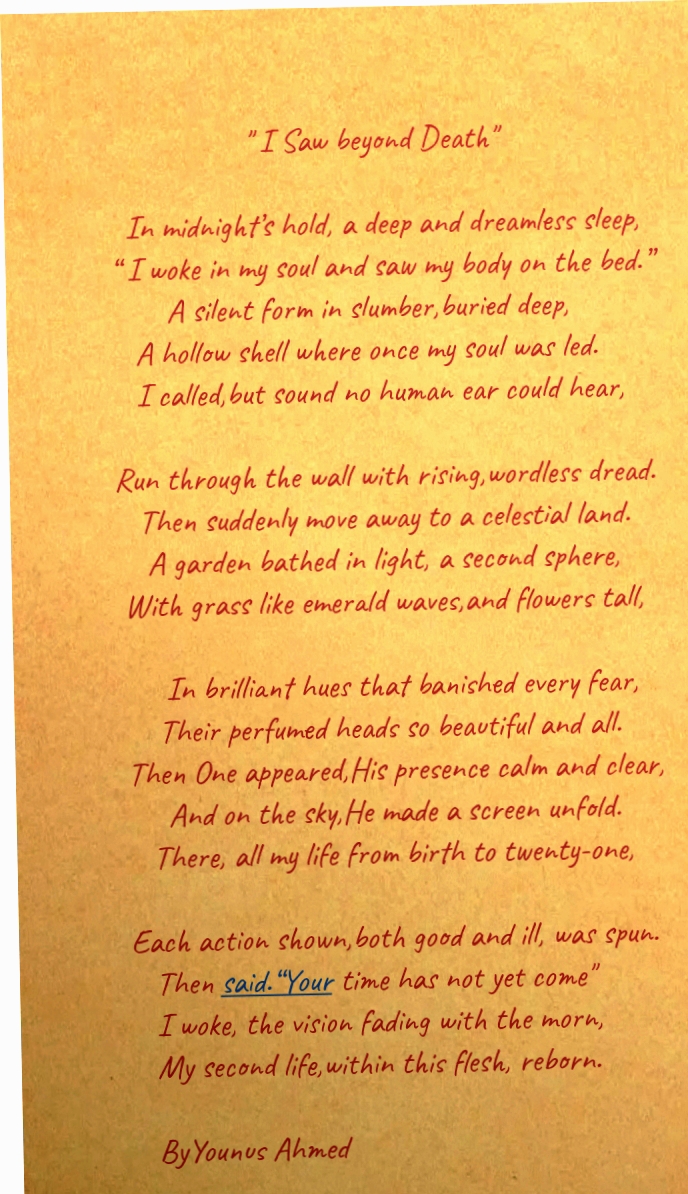 "I Saw beyond Death"
In midnight's hold, a deep and dreamless sleep,
“I woke in my soul and saw my body on the bed.”
A silent form in slumber,buried deep,
A hollow shell where once my soul was led.
I called,but sound no human ear could hear,
Run through the wall with rising,wordless dread.
Then suddenly move away to a celestial land.
A garden bathed in light, a second sphere,
With grass like emerald waves,and flowers tall,
In brilliant hues that banished every fear,
Their perfumed heads so beautiful and all.
Then One appeared,His presence calm and clear,
And on the sky,He made a screen unfold.
There, all my life from birth to twenty-one,
Each action shown,both good and ill, was spun.
Then said.“Your time has not yet come”
I woke, the vision fading with the morn,
My second life,within this flesh, reborn.
ByYounus Ahmed